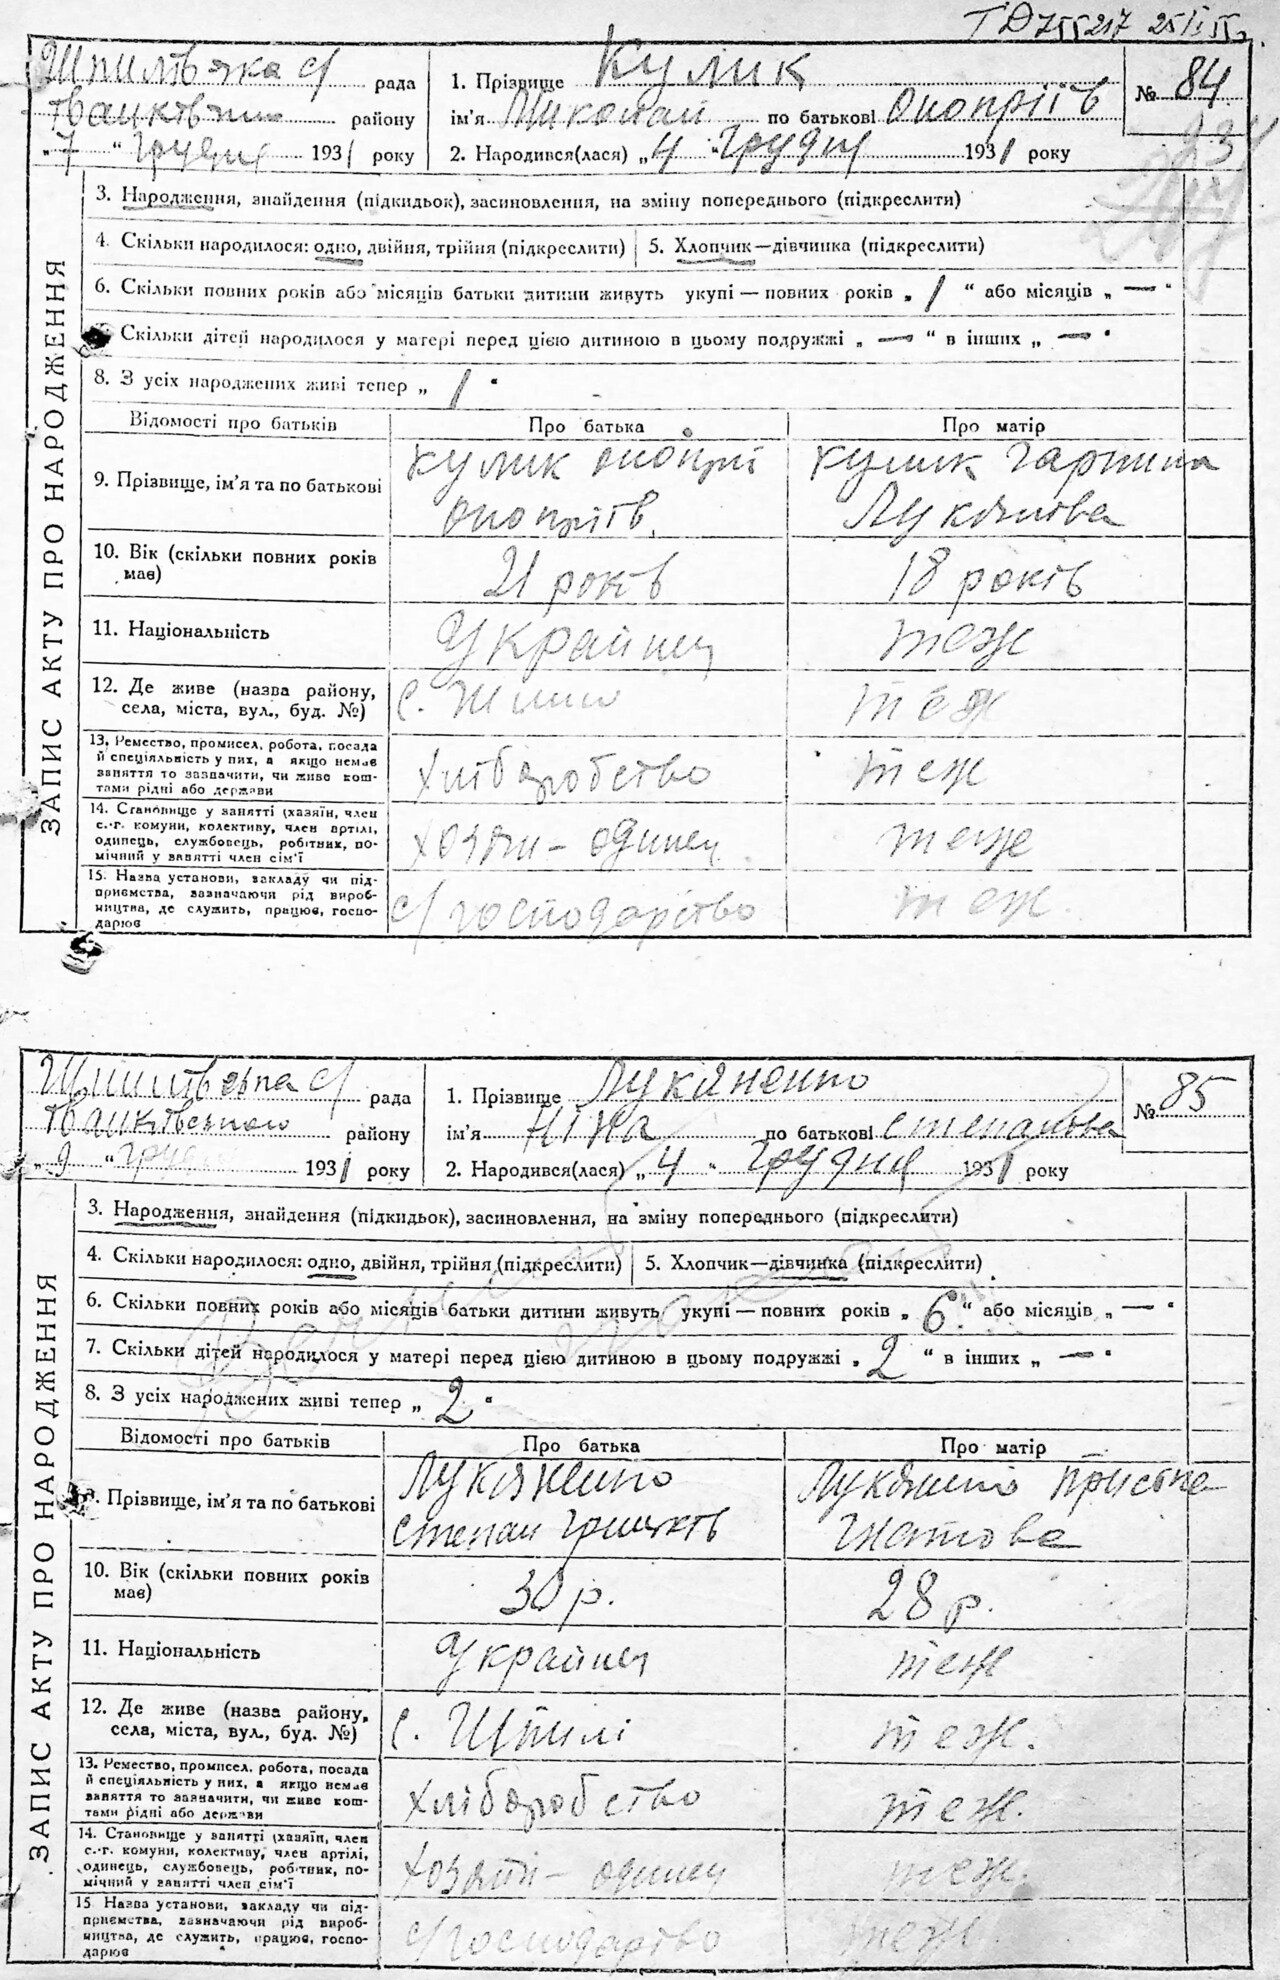 ТД 755217 25
Шпилівська с/ рада
Іванківськ району
„ 7 “ Грудня 1931 року
1. Прізвище Кулик
ім’я Миколай по батькові Оноприїв
2. Народився(лася) „ 4 “ Грудня 1931 року
№ 84
ЗАПИС АКТУ ПРО НАРОДЖЕННЯ
3. Народження, знайдення (підкидьок), засиновлення, на зміну попереднього (підкреслити)
4. Скільки народилося: одно, двійня, трійня (підкреслити) 5. Хлопчик—дівчинка (підкреслити)
6. Скільки повних років або місяців батьки дитини живуть укупі — повних років „ 1 “ або місяців „ — “
Скільки дітей народилося у матері перед цією дитиною в цьому подружжі „ — “ в інших „ — “
8. З усіх народжених живі тепер „ 1 “
Відомості про батьків Про батька Про матір
9. Прізвище, ім’я та по батькові Кулик Оноприї Оноприїв. Кулик Гарпина Лукянова
10. Вік (скільки повних років має) 21 років 18 років
11. Національність Українец теж
12. Де живе (назва району, села, міста, вул., буд. №) с. Шпилі теж
13. Ремество, промисел, робота, посада й спеціяльність у них, а якщо немає заняття то зазначити, чи живе коштами рідні або держави хліборобство теж
14. Становище у занятті (хазяїн, член с.-г. комуни, колективу, член артілі, одинець, службовець, робітник, помічний у занятті член сім’ї хозяїн - одинец теж
15. Назва установи, закладу чи підприємства, зазначаючи рід виробництва, де служить, працює, господарює с/господарство теж
Шпилівська с/ рада
Іванківського району
„ 9 “ Грудня 1931 року
1. Прізвище Лукяненко
ім’я Ніна по батькові Степанова
2. Народився(лася) „ 4 “ Грудня 1931 року
№ 85
ЗАПИС АКТУ ПРО НАРОДЖЕННЯ
3. Народження, знайдення (підкидьок), засиновлення, на зміну попереднього (підкреслити)
4. Скільки народилося: одно, двійня, трійня (підкреслити) 5. Хлопчик—дівчинка (підкреслити)
6. Скільки повних років або місяців батьки дитини живуть укупі — повних років „ 6 “ або місяців „ — “
7. Скільки дітей народилося у матері перед цією дитиною в цьому подружжі „ 2 “ в інших „ — “
8. З усіх народжених живі тепер „ 2 “
Відомості про батьків Про батька Про матір
Прізвище, ім’я та по батькові Лукяненко Степан Грицьків Лукяненко Пристка Гнатова
10. Вік (скільки повних років має) 30 р. 28 р.
11. Національність Українец теж
12. Де живе (назва району, села, міста, вул., буд. №) с. Шпилі теж.
13. Ремество, промисел, робота, посада й спеціяльність у них, а якщо немає заняття то зазначити, чи живе коштами рідні або держави хліборобство теж.
14. Становище у занятті (хазяїн, член с.-г. комуни, колективу, член артілі, одинець, службовець, робітник, помічний у занятті член сім’ї хозяїн - одинец теж.
15 Назва установи, закладу чи підприємства, зазначаючи рід виробництва, де служить, працює, господарює с/господарство теж.